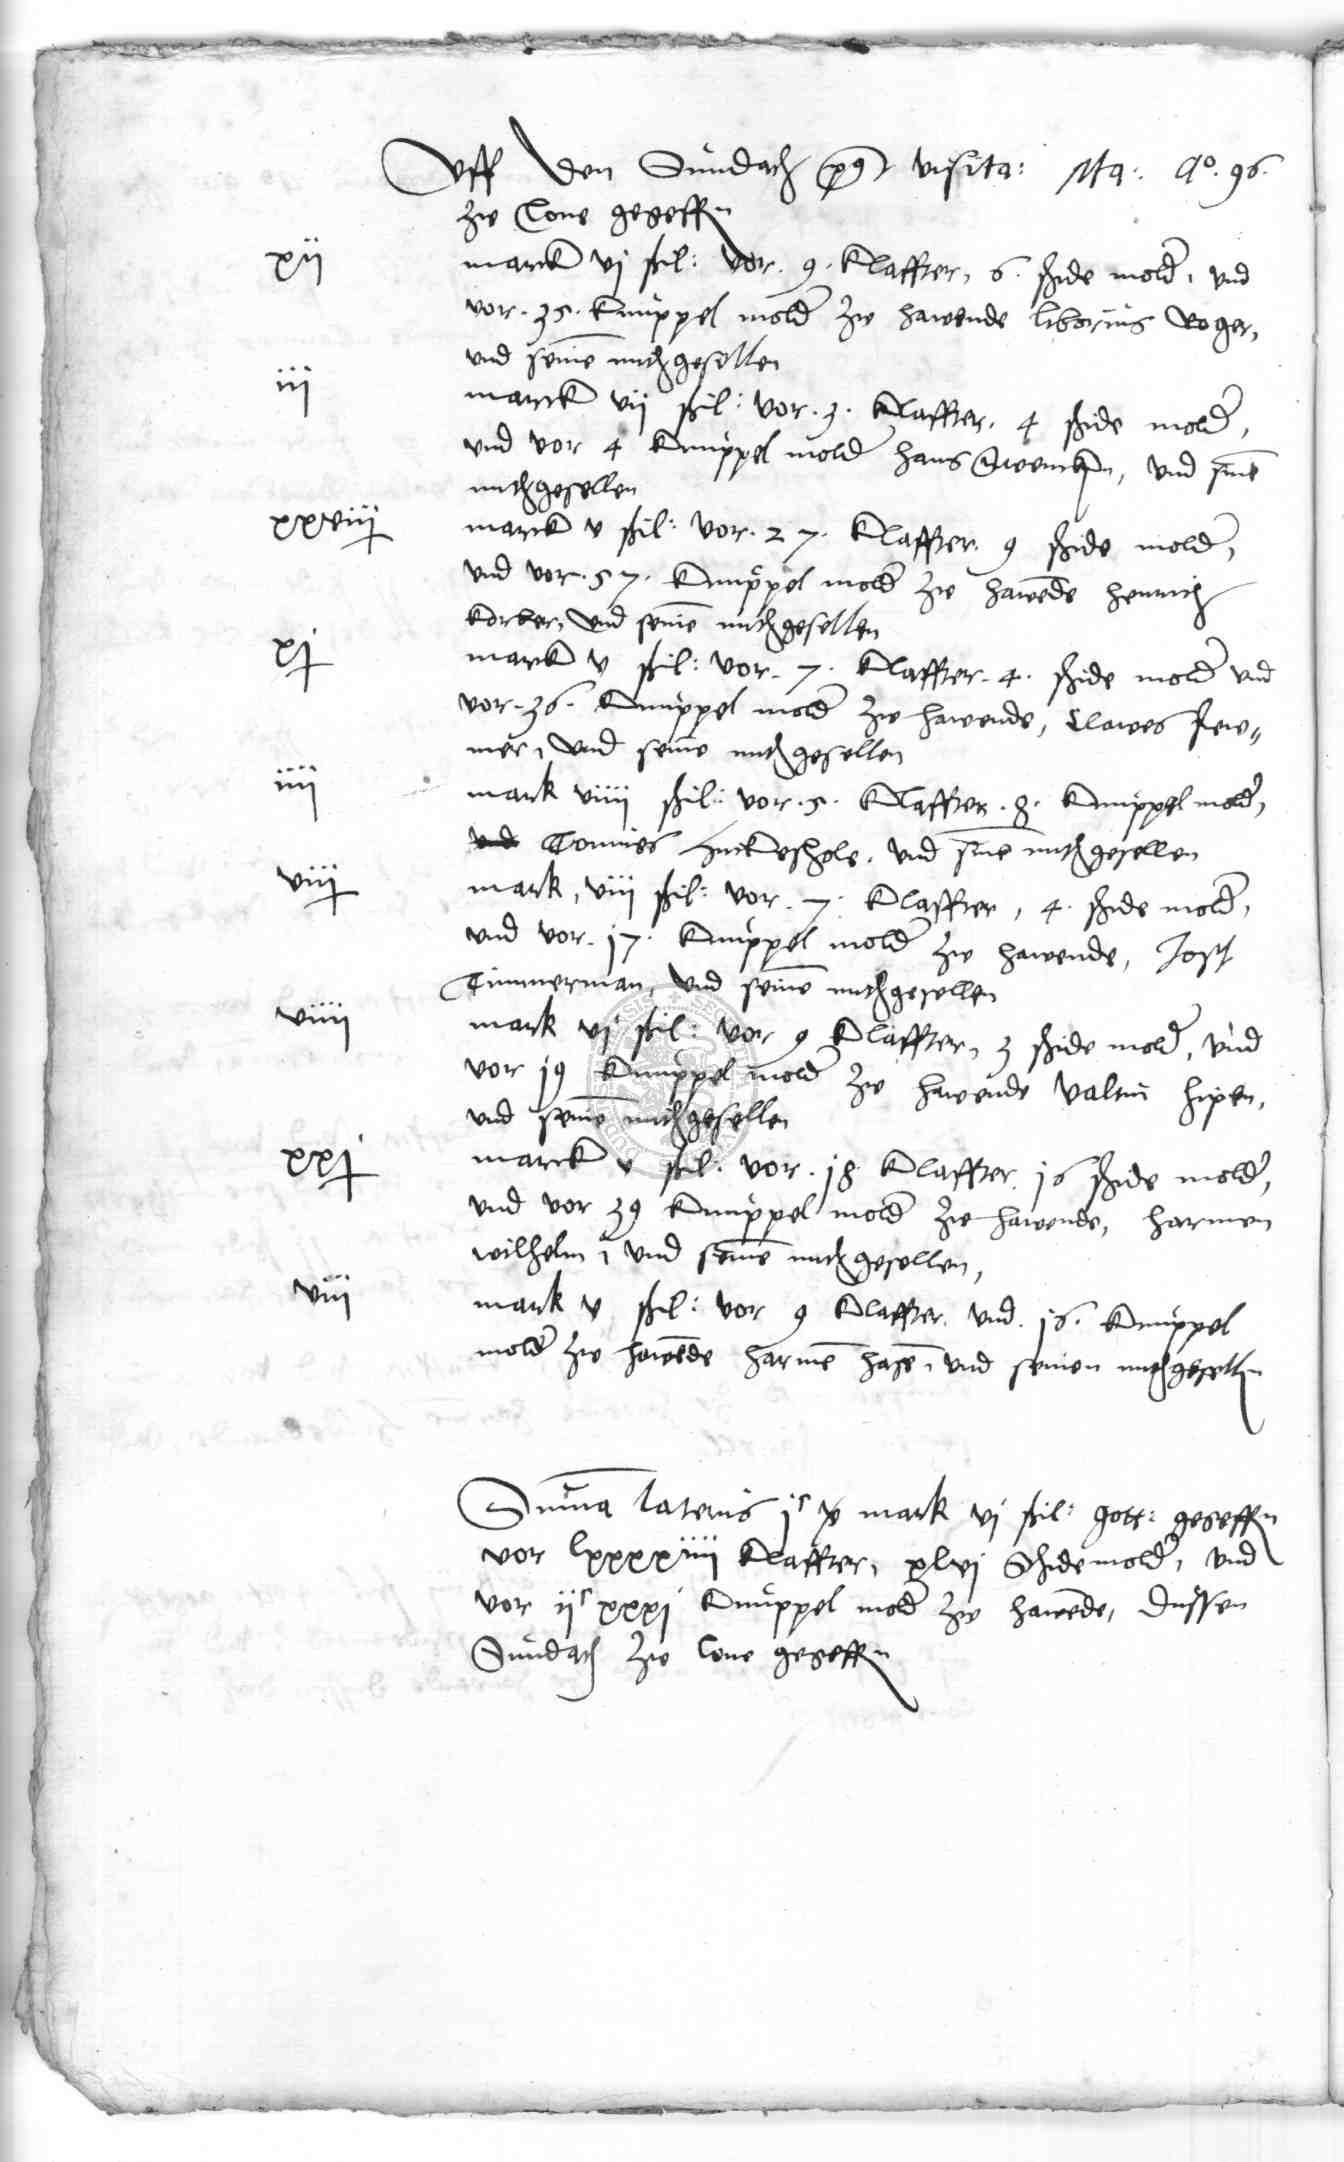 Uff den Sundach p9 visita: Ma: Ao. 96.
zw lone gegeffn
xij marck vj ßil: vor. 9. Klaffter, 6. shide molder, vnd
vor. 35. Knuppel molder zw hawende liborius Roger,
vnd seine mithgesellen
iij marck vij ßil: vor. 3. Klaffter. 4 shide molder,
vnd vor 4 Knuppel molder hans, vnd sine
mithgesellen
xxviij marck v ßil: vor. 27. Klaffter. 9 shide molder,
vnd vor. 57. Knuppel molder zw hawede henrich
korber, vnd seine mithgesellen
xj marck v ßil: vor. 7. Klaffter. 4. shide molder vnd
vor. 36. Knuppel molder zw hawende, Clawes
mer, vnd seine mithgesellen
iiij mark viiij ßil: vor. 5. Klaffter. 8. Knuppel molder,
vnd Tonnies, vnd sine mithgesellen
viij mark, viij ßil: vor. 7. Klaffter, 4. shide molder,
vnd vor. j7. Knuppel molder zw hawende, Jost
Timmerman, vnd seine mithgesellen
viiij mark vj ßil: vor 9 Klaffter, 3 shide molder, vnd
vor j9 Knuppel molder zw hawende valtin hipen,
vnd seine mithgesellen
xxj marck v ßil: vor. j8 Klaffter j6 shide molder,
vnd vor 39 Knuppel molder zw hawende, harmen
wilhelm, vnd seine mithgesellen,
viij mark v ßil: vor 9 Klaffter vnd. j6. Knuppel
molder zw hawede harme hase, vnd seinen mithgeselln
Suma lateris jc x mark vj ßil: gott: gegeffn
vor lxxxxiiij Klaffter, xlvj Shidemolder, vnd
vor ijc xxxj Knuppel molder zw hawede, dussen
Sundach zw lone gegeffn